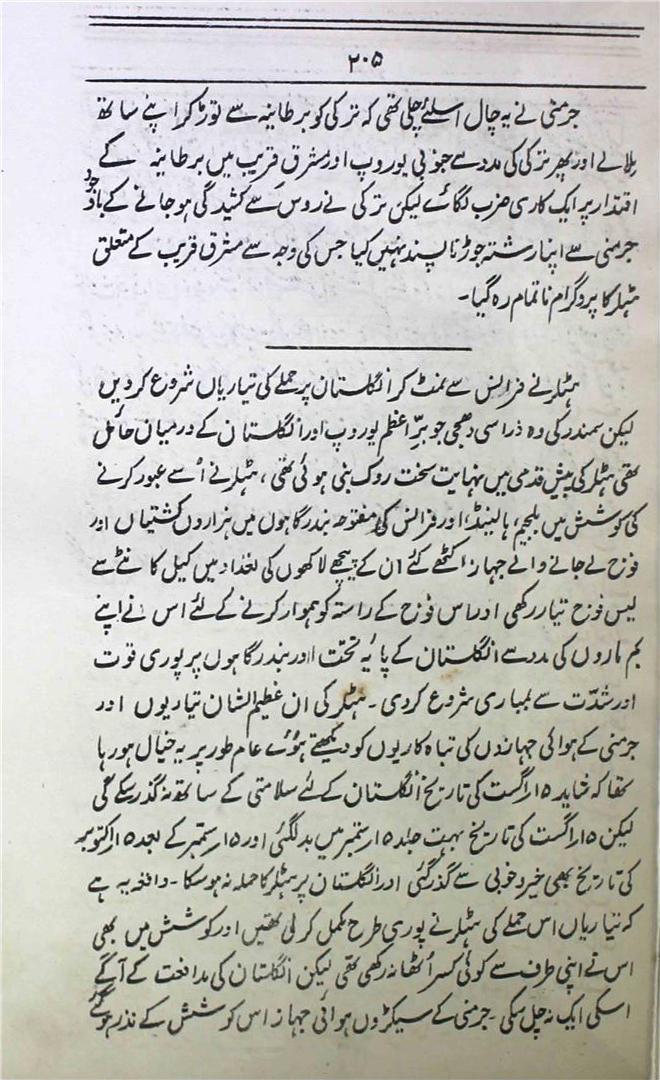 ۲۰۵
جرمنی نے یہ چال اسلئے چلی تھی کہ ترکی کو برطانیہ سے توڑ کر اپنے ساتھ
ملالے اور پھر ترکی کی مدد سے جنوبی یوروپ اور مشرق قریب میں برطانیہ کے
اقتدار پر ایک کاری ضرب لگائے لیکن ترکی نے روس سے کشیدگی ہو جانے کے باوجود
جرمنی سے اپنا رشتہ جوڑنا پسند نہیں کیا جس کی وجہ سے مشرق قریب کے متعلق
ہٹلر کا پروگرام ناتمام رہ گیا۔
ہٹلر نے فرانس سے نمٹ کر انگلستان پر حملے کی تیاریاں شروع کردیں
لیکن سمندر کی وہ ذراسی دھجی جو برِّ اعظم یوروپ اور انگلستان کے درمیان حائل
تھی ہٹلر کی پیش قدمی میں نہایت سخت روک بنی ہوئی تھی، ہٹلر نے اُسے عبور کرنے
کی کوشش میں بلجیم، ہالینڈ، اور فرانس کی مفتوحہ بندرگاہوں میں ہزاروں کشتیاں اور
فوج لے جانے والے جہاز اکٹھے کئے ان کے پیچھے لاکھوں کی تعداد میں کیل کانٹے سے
لیس فوج تیار رکھی اور اس فوج کے راستہ کو ہموار کرنے کے لئے اس نے اپنے
بم ماروں کی مدد سے انگلستان کے پایۂ تخت اور بندرگاہوں پر پوری قوت
اور شدّت سے بمباری شروع کردی۔ ہٹلر کی ان عظیم الشان تیاریوں اور
جرمنی کے ہوائی جہازوں کی تباہ کاریوں کو دیکھتے ہوئے عام طور پر یہ خیال ہورہا
تھا کہ شاید ۱۵؍اگست کی تاریخ انگلستان کے لئے سلامتی کے ساتھ نہ گذر سکے گی
لیکن ۱۵؍اگست کی تاریخ بہت جلد ۱۵؍ستمبر میں بدل گئی اور ۱۵؍ستمبر کے بعد ۱۵؍اکتوبر
کی تاریخ بھی خیر و خوبی سے گذر گئی اور انگلستان پر ہٹلر کا حملہ نہ ہوسکا۔ واقعہ یہ ہے
کہ تیاریاں اس حملے کی ہٹلر نے پوری طرح مکمل کرلی تھیں اور کوشش میں بھی
اس نے اپنی طرف سے کوئی کسر اُٹھا نہ رکھی تھی لیکن انگلستان کی مدافعت کے آگے
اسکی ایک نہ چل سکی۔ جرمنی کے سیکڑوں ہوائی جہاز اس کوشش کے نذر ہوگئے